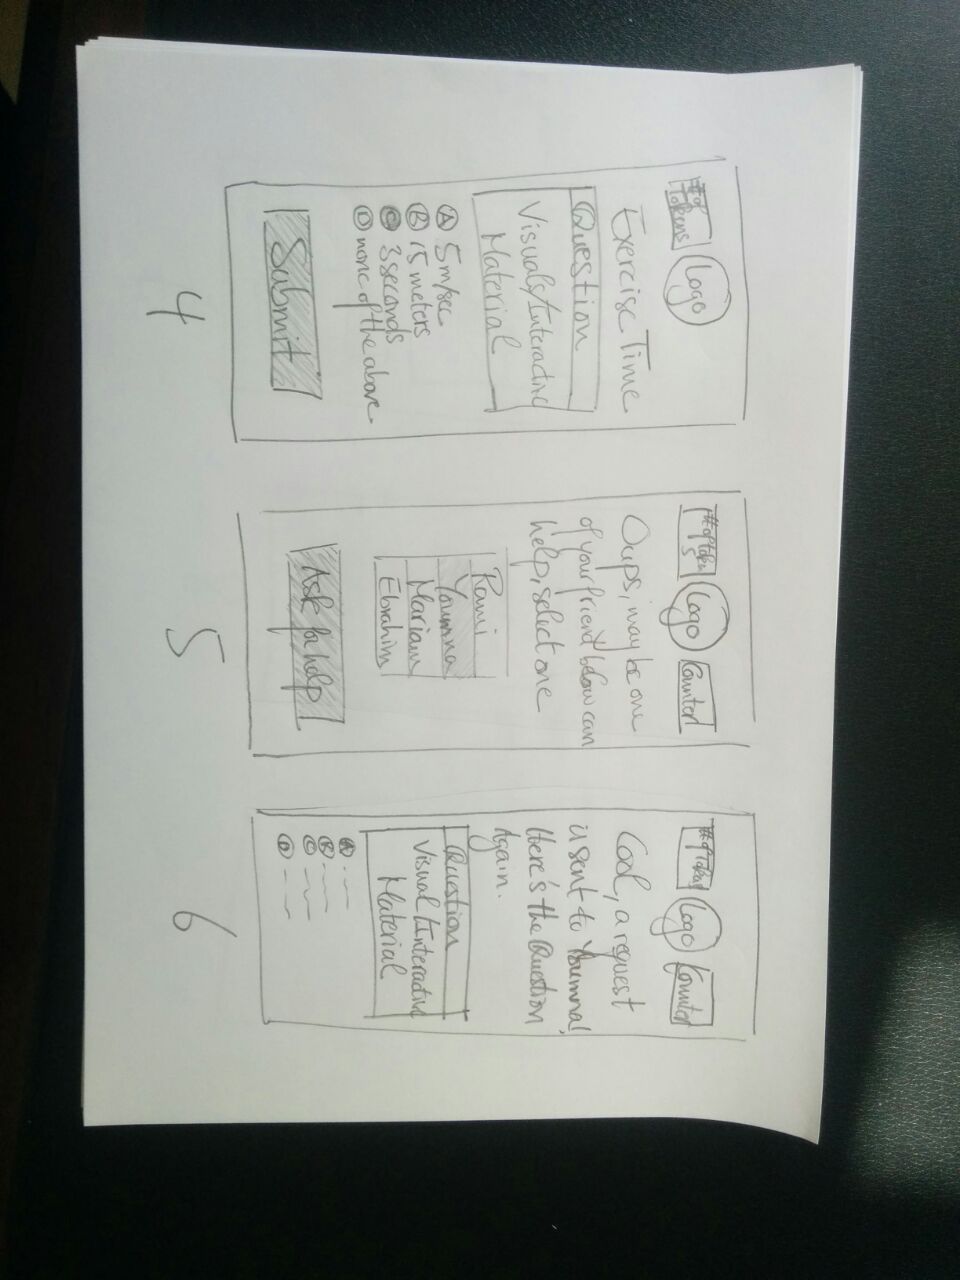 # of
Tokens
Logo
Exercise Time
Question
Visuals/Interactive
Material
A 5m/sec
B 15 meters
C 3 seconds
D none of the above
Submit
4
# of Token
s
Logo
Counter
Oups, may be one
of your friend below can
help, select one
Rami
Youmna
Mariam
Ebrahim
Ask for help
5
# of Token
Logo
Counter
Cool, a request
is sent to Youmna!
Here's the Question
Again.
Question
Visual/Interactive
Material
A
B
C
D
6